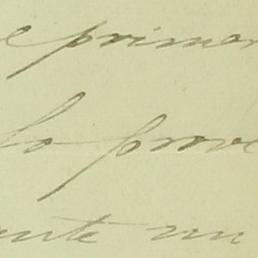 e primer
lo prove
ente un